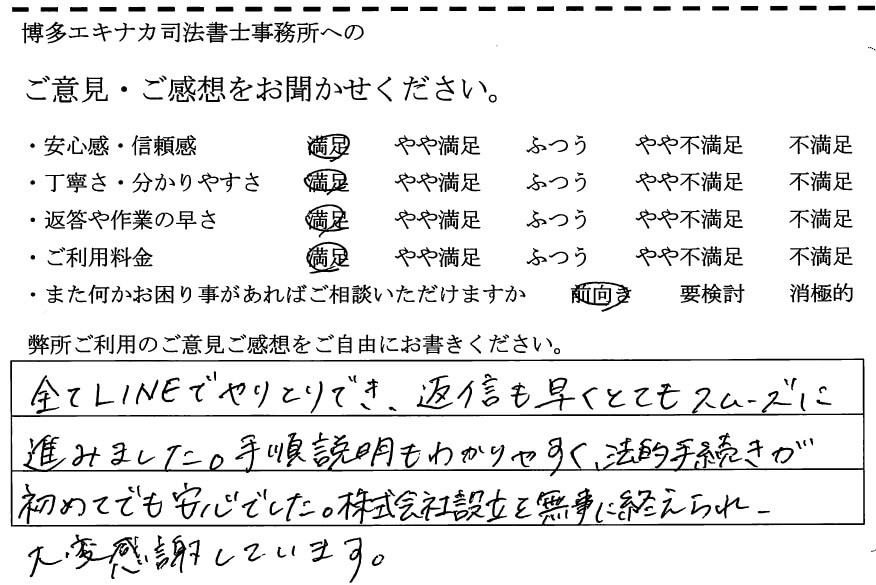 博多エキナカ司法書士事務所への
ご意見・ご感想をお聞かせください。
・安心感・信頼感 満足 やや満足 ふつう やや不満足 不満足
・丁寧さ・分かりやすさ 満足 やや満足 ふつう やや不満足 不満足
・返答や作業の早さ 満足 やや満足 ふつう やや不満足 不満足
・ご利用料金 満足 やや満足 ふつう やや不満足 不満足
・また何かお困り事があればご相談いただけますか 前向き 要検討 消極的
弊所ご利用のご意見ご感想をご自由にお書きください。
全てLINEでやりとりでき、返信も早くとてもスムーズに
進みました。手順説明もわかりやすく、法的手続きが
初めてでも安心でした。株式会社設立を無事に終えられ、
大変感謝しています。